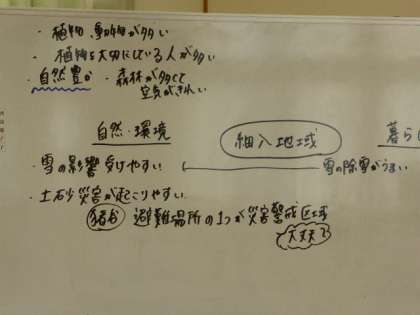 ・植物、動物が多い
・植物を大切にしている人が多い
・自然豊か ・森林が多くて
空気がきれい
自然・環境
細入地域
暮らし
・雪の影響受けやすい
雪の除雪がうまい
・土砂災害が起こりやすい
猪谷 避難場所の1つが災害警戒区域
大丈夫?